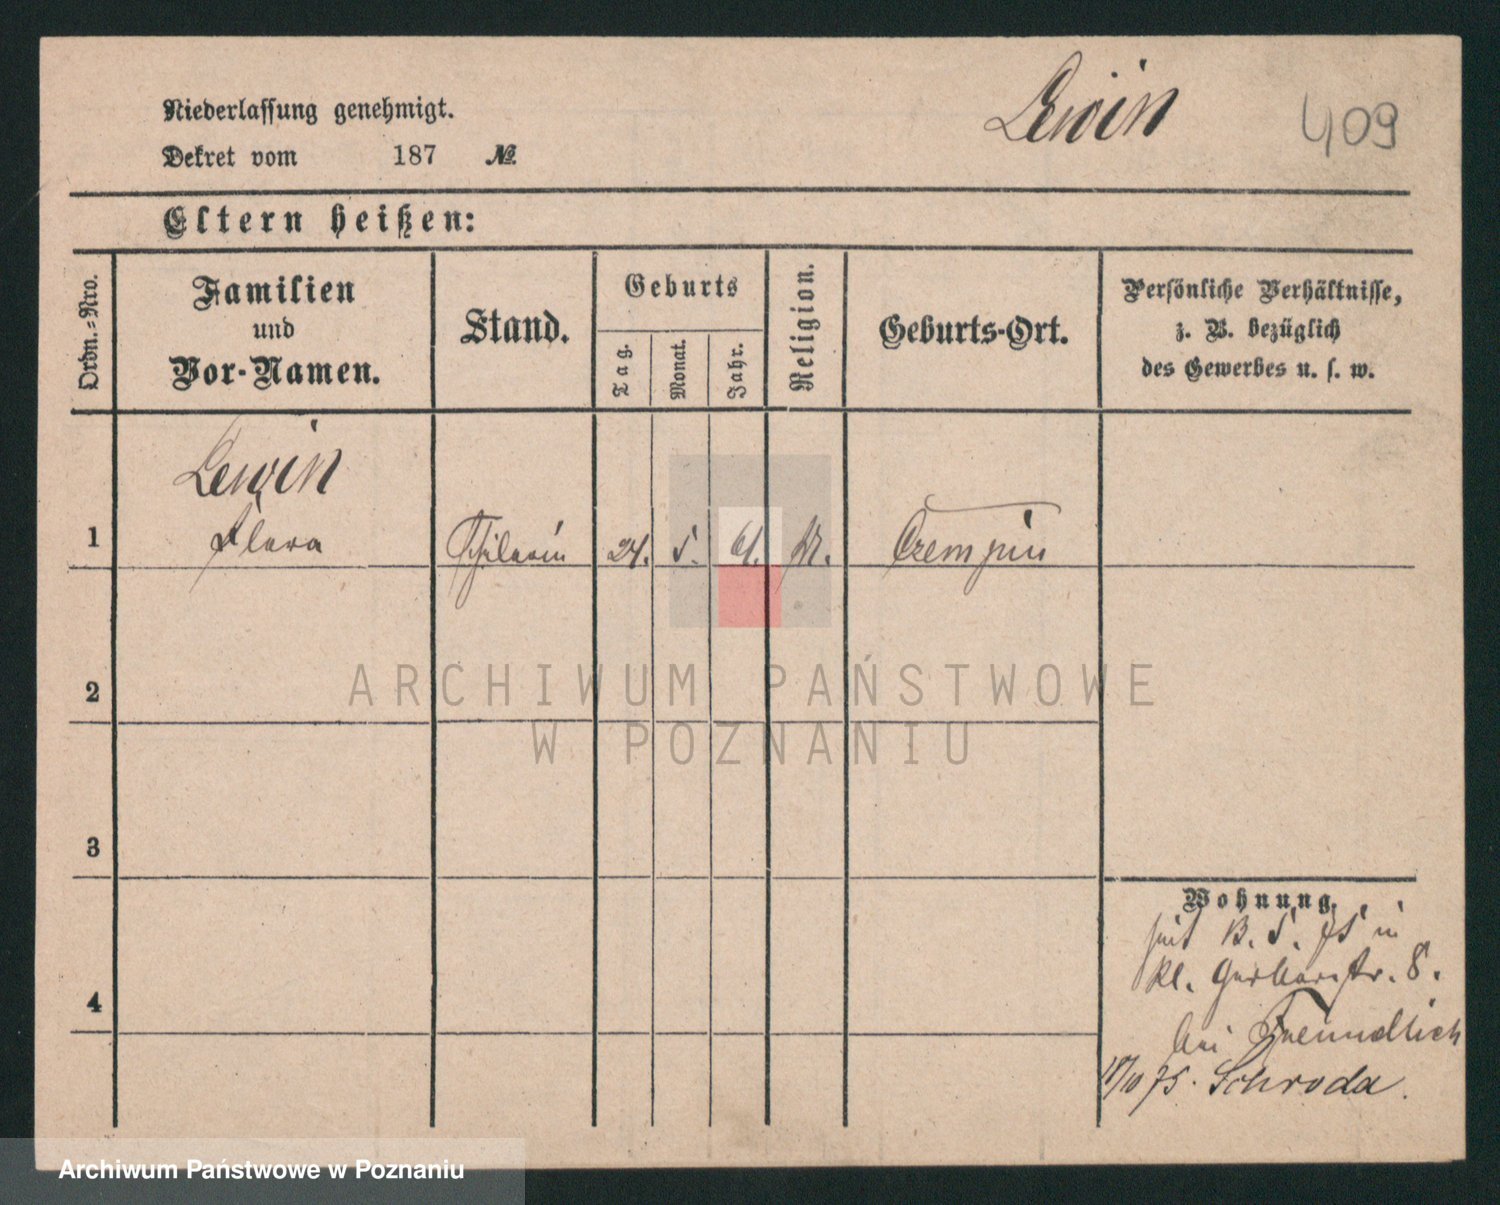 Lewin
409
Niederlassung genehmigt.
Dekret vom 187 №
Eltern heißen:
Ordn.=Nro.
Familien
und
Vor-Namen.
Stand.
Geburts
Tag.
Monat.
Jahr.
Religion.
Geburts-Ort.
Persönliche Verhältnisse,
z. B. bezüglich
des Gewerbes u. s. w.
Lewin
1 Flora Schülerin 24. 5. 61. Czempin
2
3
4
Wohnung.
seit 5. 75 in
kl. Gerberstr. 8.
bei Freundlich
/10 75. Schroda.
ARCHIWUM PAŃSTWOWE
W POZNANIU
Archiwum Państwowe w Poznaniu